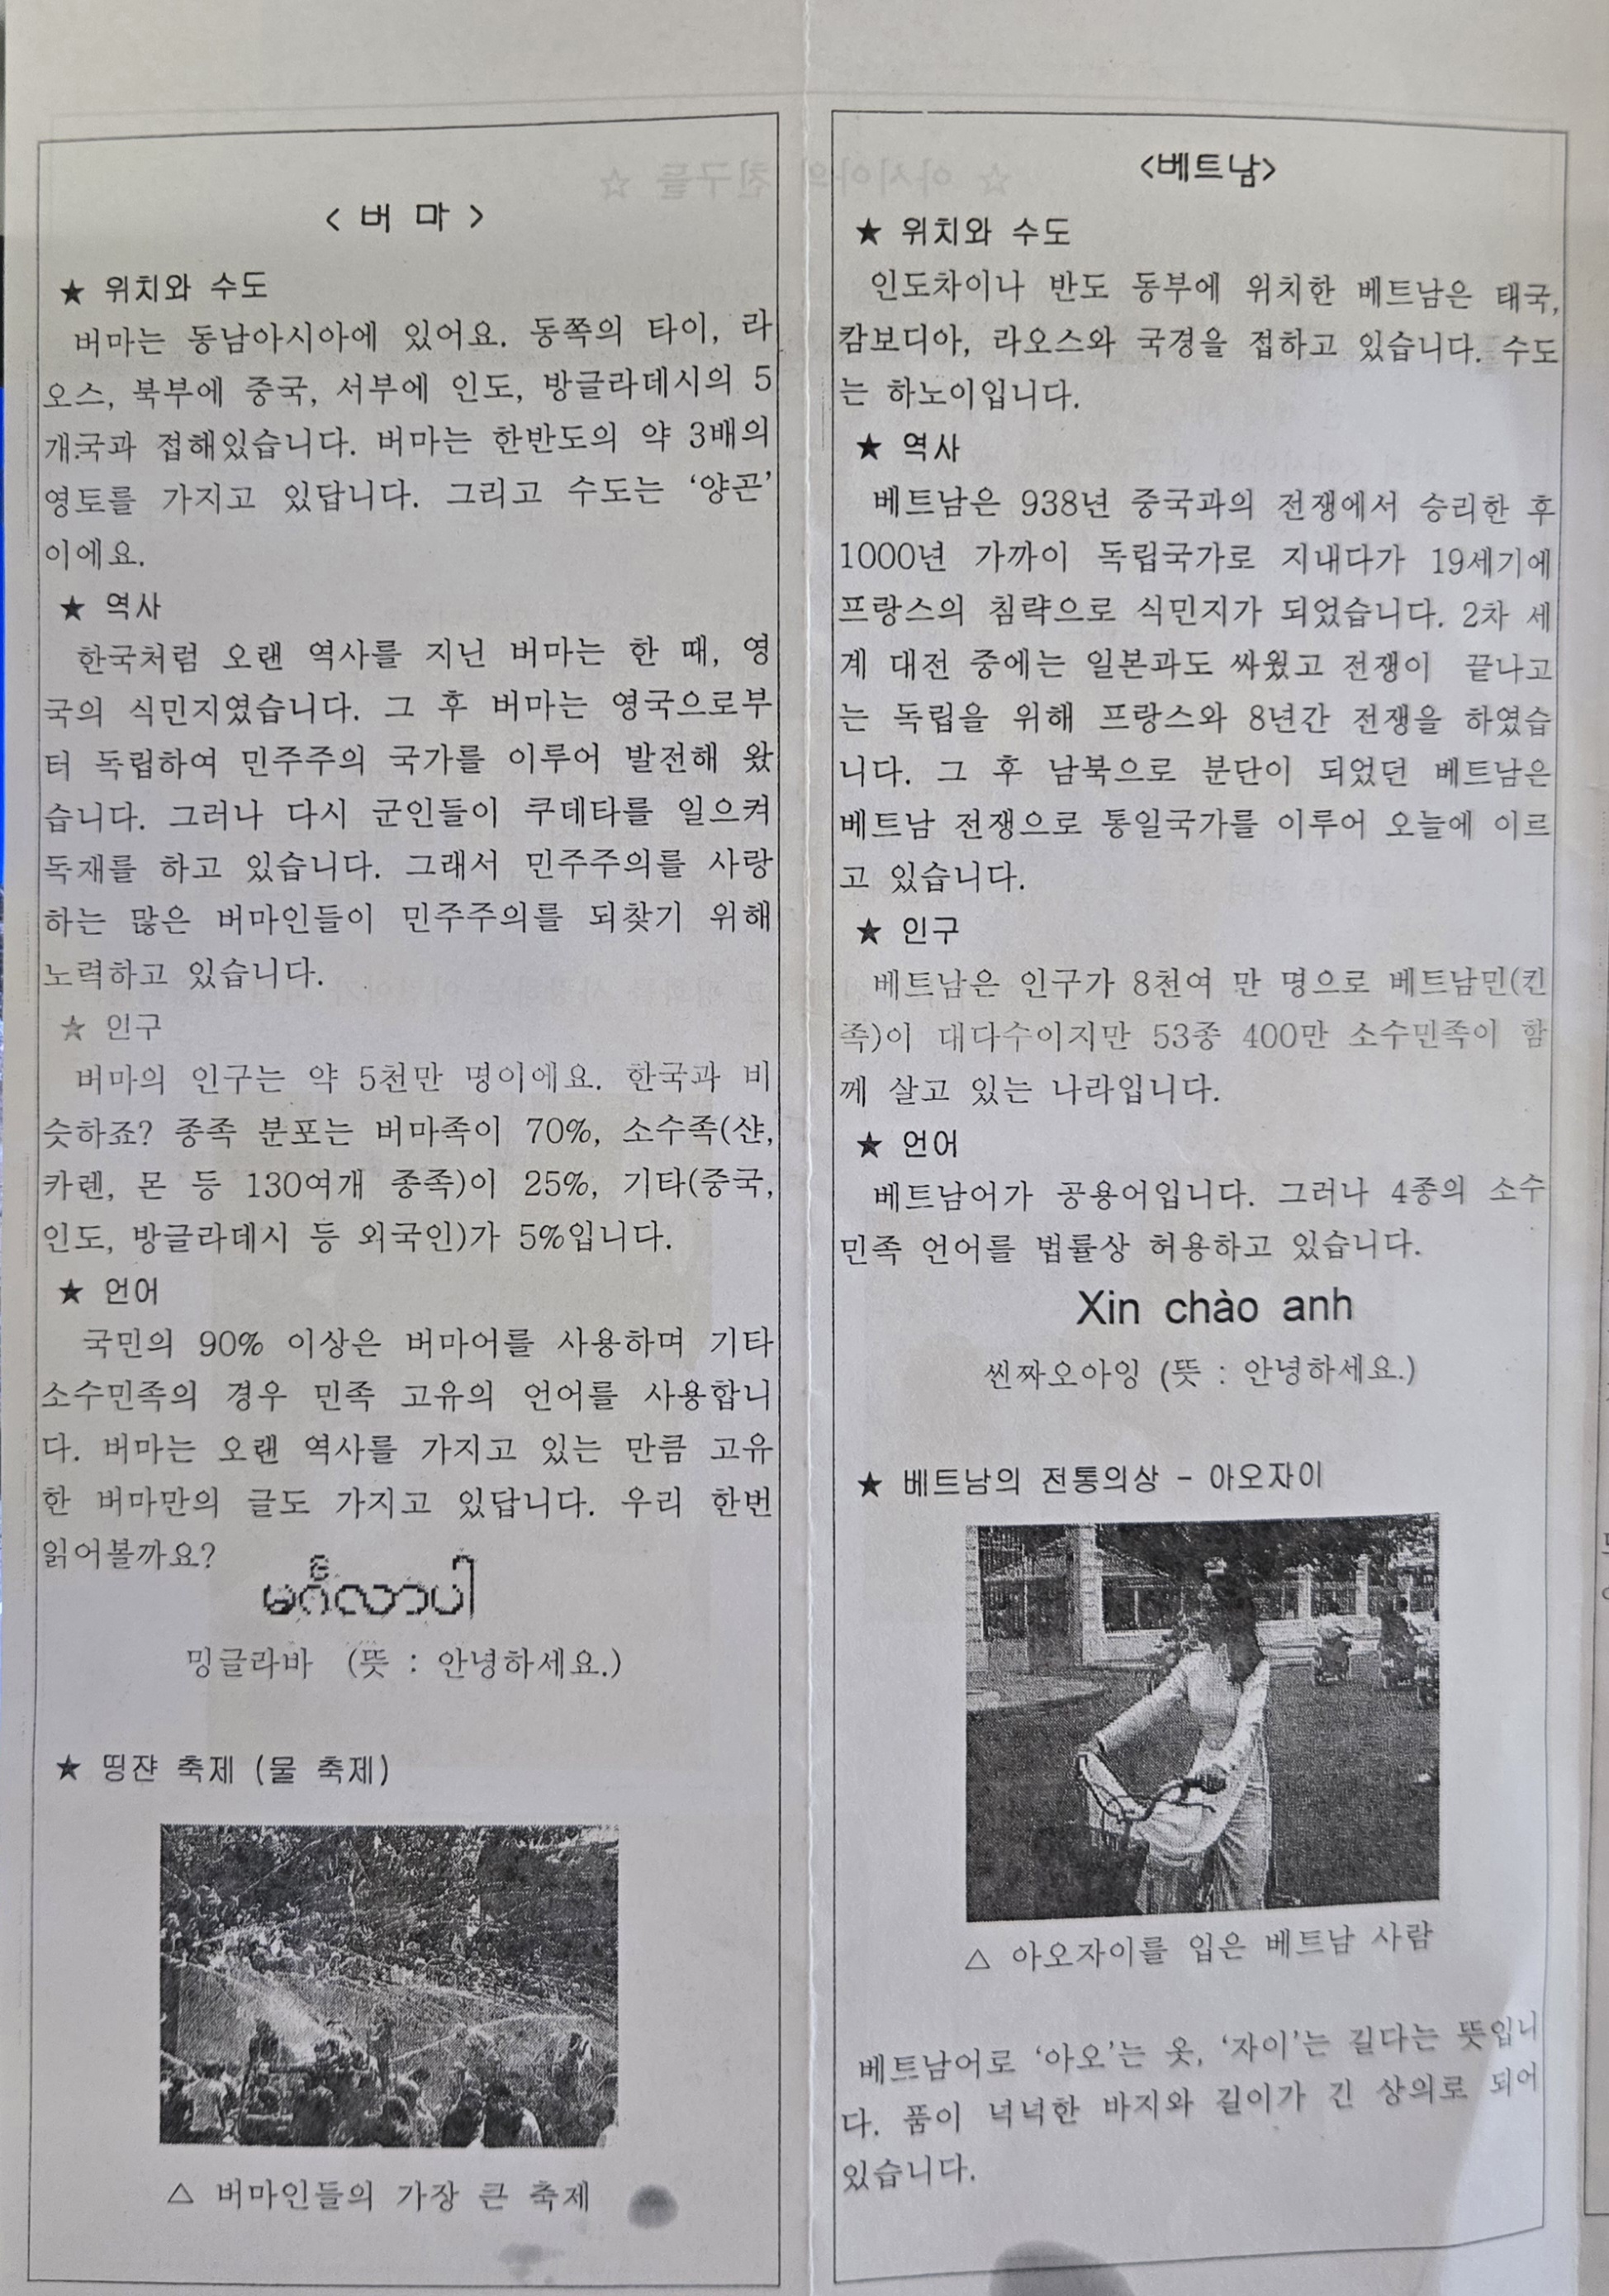 < 버 마 >
★ 위치와 수도
버마는 동남아시아에 있어요. 동쪽의 타이, 라
오스, 북부에 중국, 서부에 인도, 방글라데시의 5
개국과 접해있습니다. 버마는 한반도의 약 3배의
영토를 가지고 있답니다. 그리고 수도는 ‘양곤’
이에요.
★ 역사
한국처럼 오랜 역사를 지닌 버마는 한 때, 영
국의 식민지였습니다. 그 후 버마는 영국으로부
터 독립하여 민주주의 국가를 이루어 발전해 왔
습니다. 그러나 다시 군인들이 쿠데타를 일으켜
독재를 하고 있습니다. 그래서 민주주의를 사랑
하는 많은 버마인들이 민주주의를 되찾기 위해
노력하고 있습니다.
★ 인구
버마의 인구는 약 5천만 명이에요. 한국과 비
슷하죠? 종족 분포는 버마족이 70%, 소수족(샨,
카렌, 몬 등 130여개 종족)이 25%, 기타(중국,
인도, 방글라데시 등 외국인)가 5%입니다.
★ 언어
국민의 90% 이상은 버마어를 사용하며 기타
소수민족의 경우 민족 고유의 언어를 사용합니
다. 버마는 오랜 역사를 가지고 있는 만큼 고유
한 버마만의 글도 가지고 있답니다. 우리 한번
읽어볼까요?
မင်္ဂလာပါ
밍글라바 (뜻 : 안녕하세요.)
★ 띵쟌 축제 (물 축제)
△ 버마인들의 가장 큰 축제
<베트남>
★ 위치와 수도
인도차이나 반도 동부에 위치한 베트남은 태국,
캄보디아, 라오스와 국경을 접하고 있습니다. 수도
는 하노이입니다.
★ 역사
베트남은 938년 중국과의 전쟁에서 승리한 후
1000년 가까이 독립국가로 지내다가 19세기에
프랑스의 침략으로 식민지가 되었습니다. 2차 세
계 대전 중에는 일본과도 싸웠고 전쟁이 끝나고
는 독립을 위해 프랑스와 8년간 전쟁을 하였습
니다. 그 후 남북으로 분단이 되었던 베트남은
베트남 전쟁으로 통일국가를 이루어 오늘에 이르
고 있습니다.
★ 인구
베트남은 인구가 8천여 만 명으로 베트남민(킨
족)이 대다수이지만 53종 400만 소수민족이 함
께 살고 있는 나라입니다.
★ 언어
베트남어가 공용어입니다. 그러나 4종의 소수
민족 언어를 법률상 허용하고 있습니다.
Xin chào anh
씬짜오아잉 (뜻 : 안녕하세요.)
★ 베트남의 전통의상 - 아오자이
△ 아오자이를 입은 베트남 사람
베트남어로 ‘아오’는 옷, ‘자이’는 길다는 뜻입니
다. 품이 넉넉한 바지와 길이가 긴 상의로 되어
있습니다.